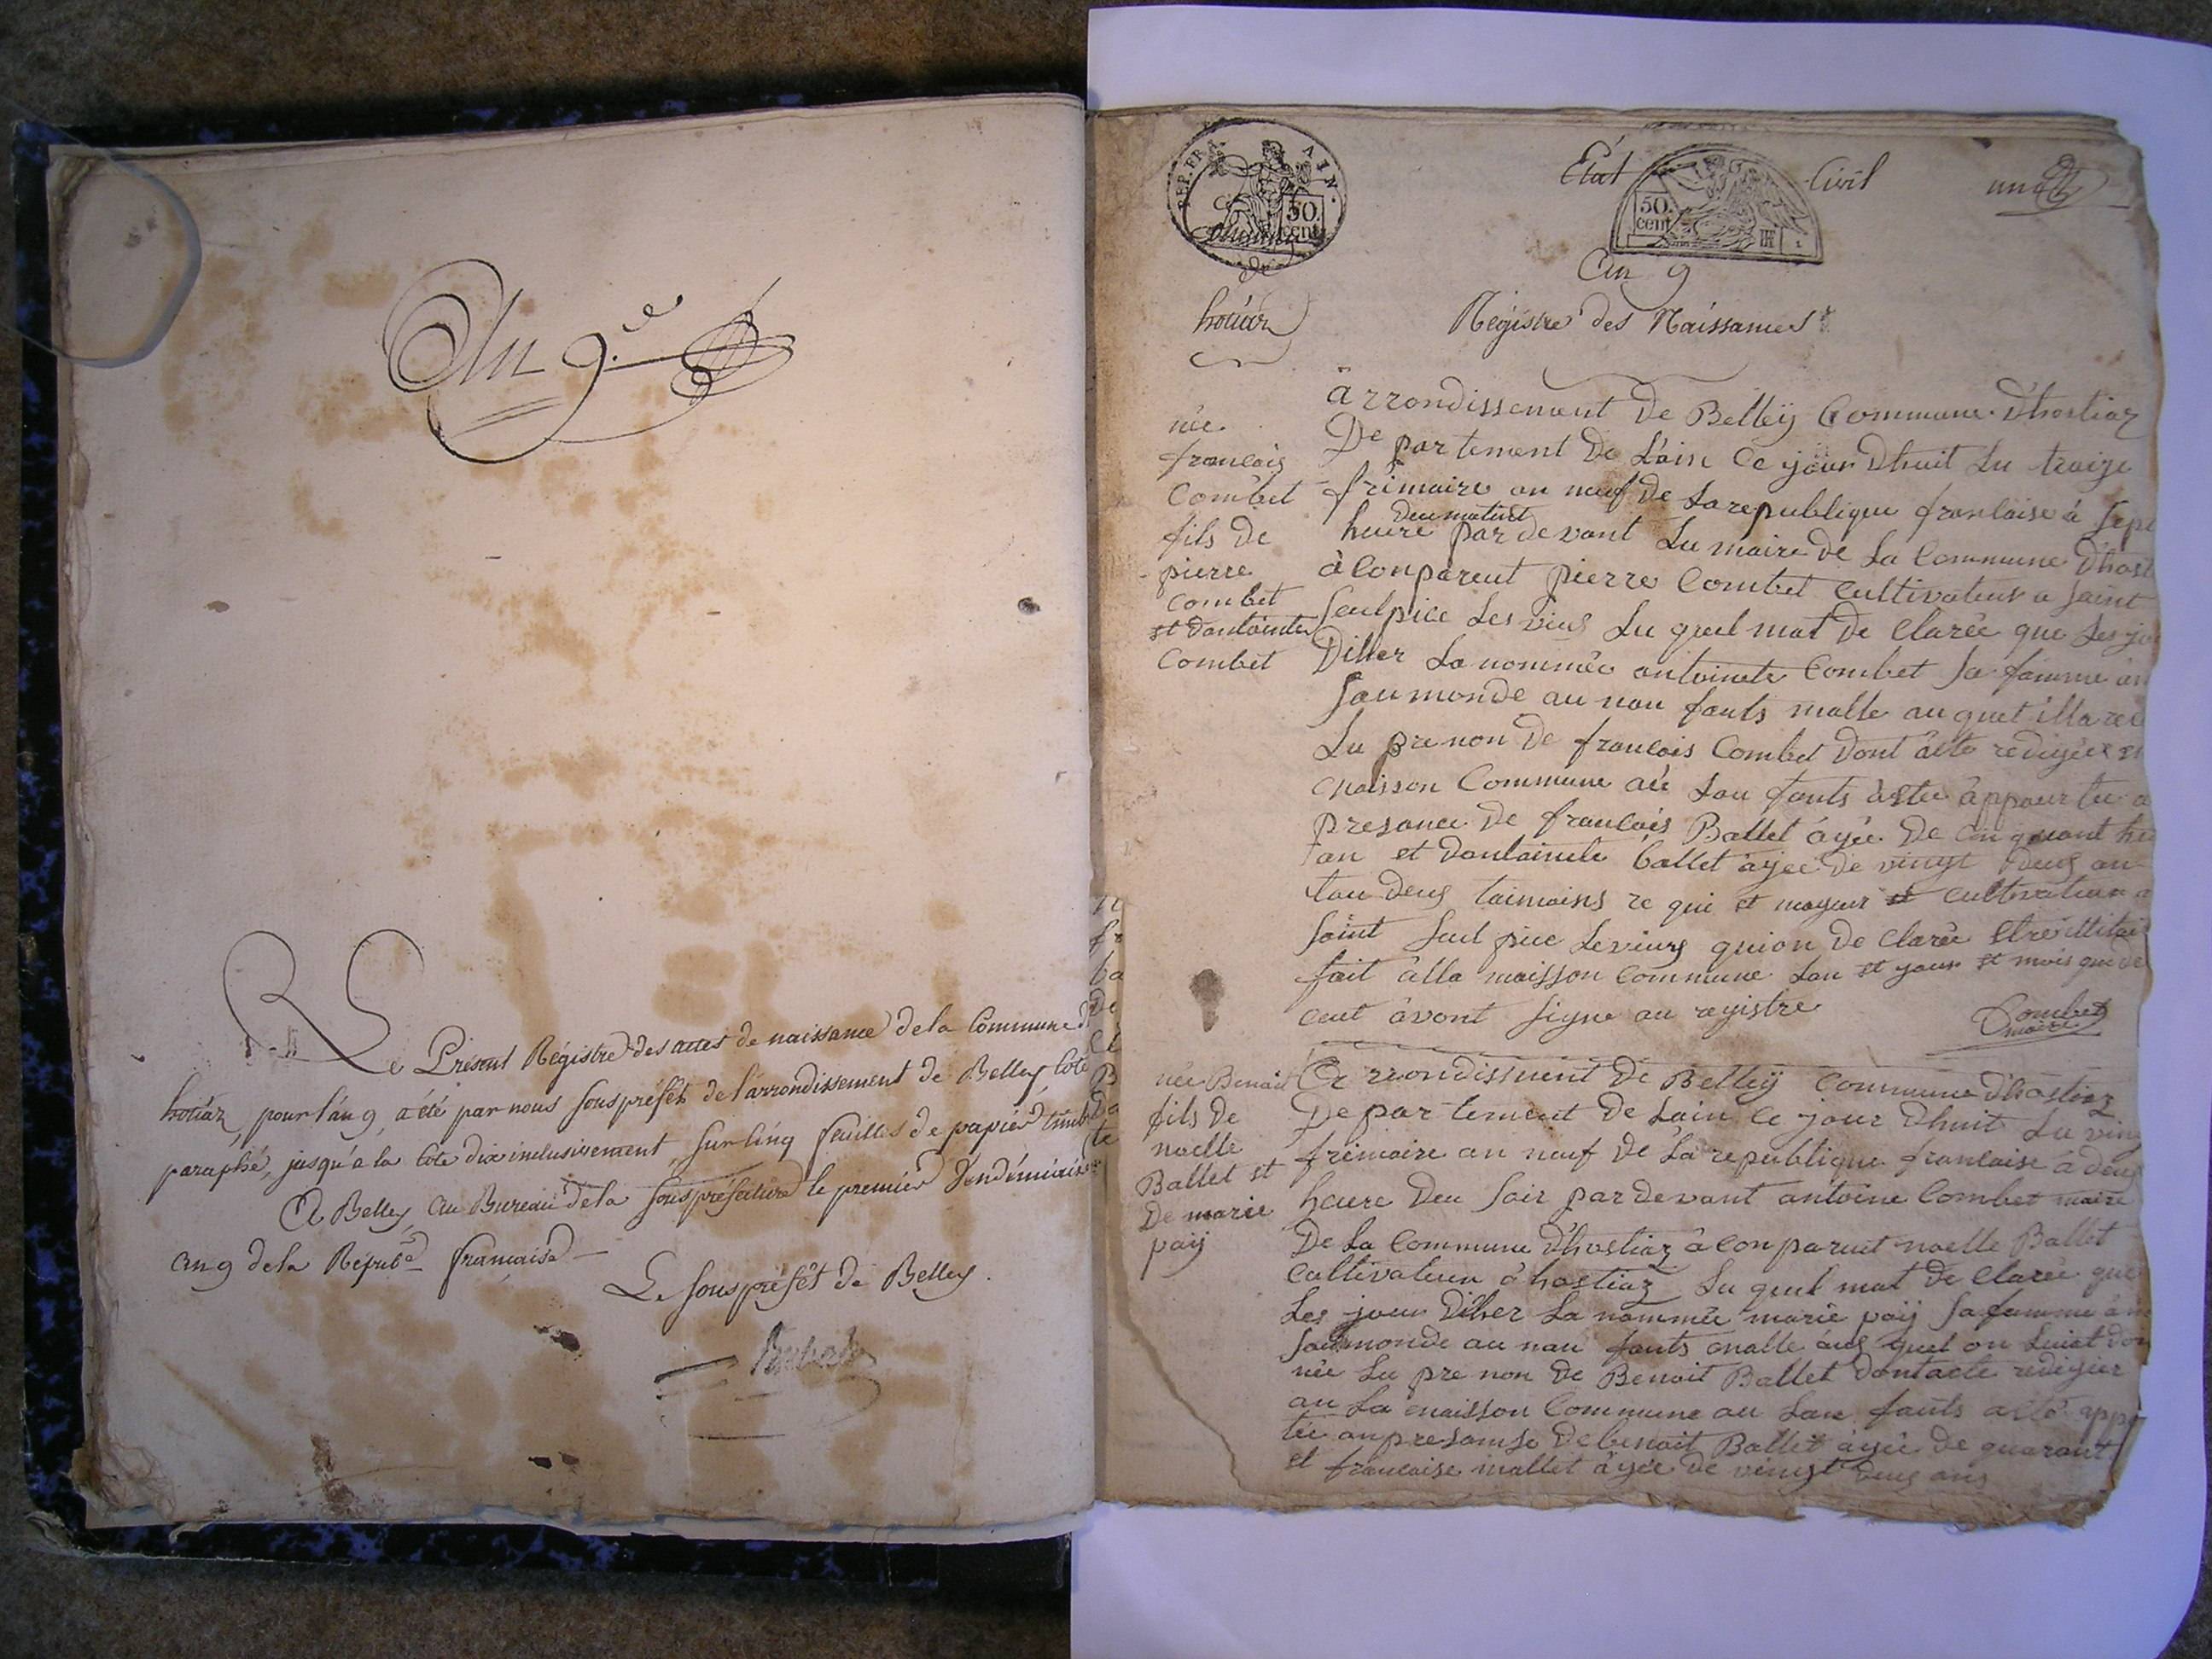 An 9.e
Le Présent Régistre des actes de naissance de la Commune d
hotiaz, pour l'an 9, a été par nous souspréfét de l'arrondissement de Belley, coté
paraphé, jusqu'a la cote dix inclusivement, sur cinq feuilles de papier timb
A Belley au Bureau de la souspréfecture le premier Vendémiaire
an 9 de la Répub.e française
Le souspréfét de Belley.
REP. FRA AIN.
50 cent
Commune
de
hotiaz
Etat Civil
50. cent
An 9
Régistre des Naissances
née
francois
Combet
fils de
pierre
combet
et dantointe
Combet
arrondissement De Belleÿ Commune D'hostiaz
De partement De L'ain Ce jour Dhuit Lu traize
frimaire an neuf De La republique francaise à sept
heure deu matint par devant Lu maire de La Commune D'host
à Conparent pierre Combet cultivateur a saint
seulpice Les vieus Lu quel mat De Clarée que Les jo
Diher La nommée antoinete Combet sa famme an
sau monde au nau fants malle au quel illa
Lu pre non De francois Combet Dont acte redigéer
maisson Commune où Lau fants astée appourtée a
presance De francois Ballet âyée De cin quant
an et Dantoinete ballet âyée De vingt deus an
tau deus taimoins re qui et mayeur et cultivateur a
saint seul pice Le vieus quion De Clarée
fait âlla maisson Commune Lan et jour et mois que de
ceut avont signe au registre
Combet
maire
née Benait
fils de
noelle
Ballet et
De marie
paÿ
Arrondissment De Belleÿ Commune D'hostiaz
De par tement De Lain Ce jour Dhuit Lu vin
frimaire an neuf De La republique francaise à deus
heure Deu soir par devant antoine Combet maire
De La Commune D'hostiaz à con paruit noelle Ballet
Cultivateur à hostiaz Lu quel mat De Clarée que
Les jour Diher La nommée marie paÿ sa famme à m
sau monde au nau fants malle auq quel on Luiat don
née Lu pre non De Benoit Ballet Dontacte redigier
au La maisson Commune au Lau fants
tée anpresanse De benoit Ballet âyée De quarant
et francaise mallet âyée De vingt deus ans